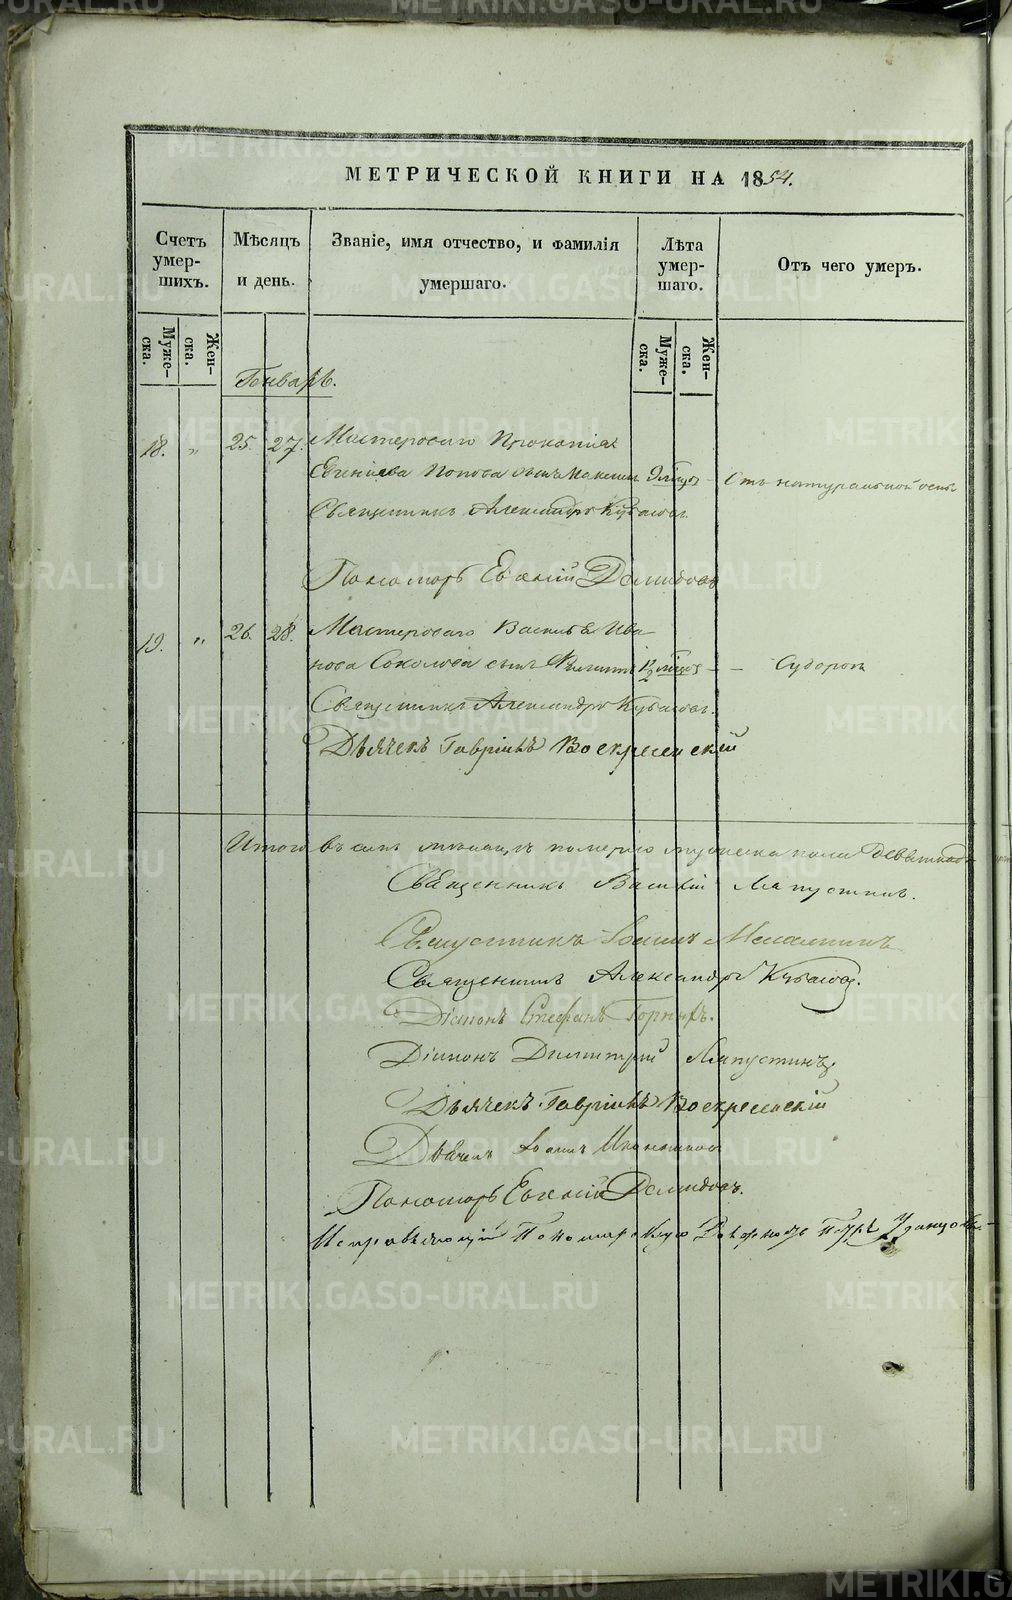 МЕТРИЧЕСКОЙ КНИГИ НА 1854.
Счетъ умер- шихъ.
Мѣсяцъ и день.
Званіе, имя отчество, и фамилія умершаго.
Лѣта умер- шаго.
Отъ чего умеръ.
Муже- ска.
Жен- ска.
Муже- ска.
Жен- ска.
Генварь.
18. „ 25. 27. Мастероваго Прокопія
Евгеніева Попова сынъ Максимъ - Отъ натуральной оспы
Священникъ Александръ Кубасовъ.
Пономарь Евгеній Демидовъ
19. „ 26. 28. Мастероваго Василья Ива-
нова Соколова сынъ Филиппъ - - Судорога
Священникъ Александръ Кубасовъ.
Дьячекъ Гавріилъ Воскресенскій
Итого въ семъ мѣсяцѣ померло мужеска пола девятнадц
Священникъ Василій Ляпустинъ.
Священникъ Іоаннъ
Священникъ Александръ Кубасовъ.
Діаконъ Стефанъ Горныхъ.
Діаконъ Димитрій Ляпустинъ
Дьячекъ Гавріилъ Воскресенскій
Дьячекъ Іоаннъ
Пономарь Евгеній Демидовъ.
Исправляющій Пономарскую Петръ Удинцовъ
METRIKI.GASO-URAL.RU